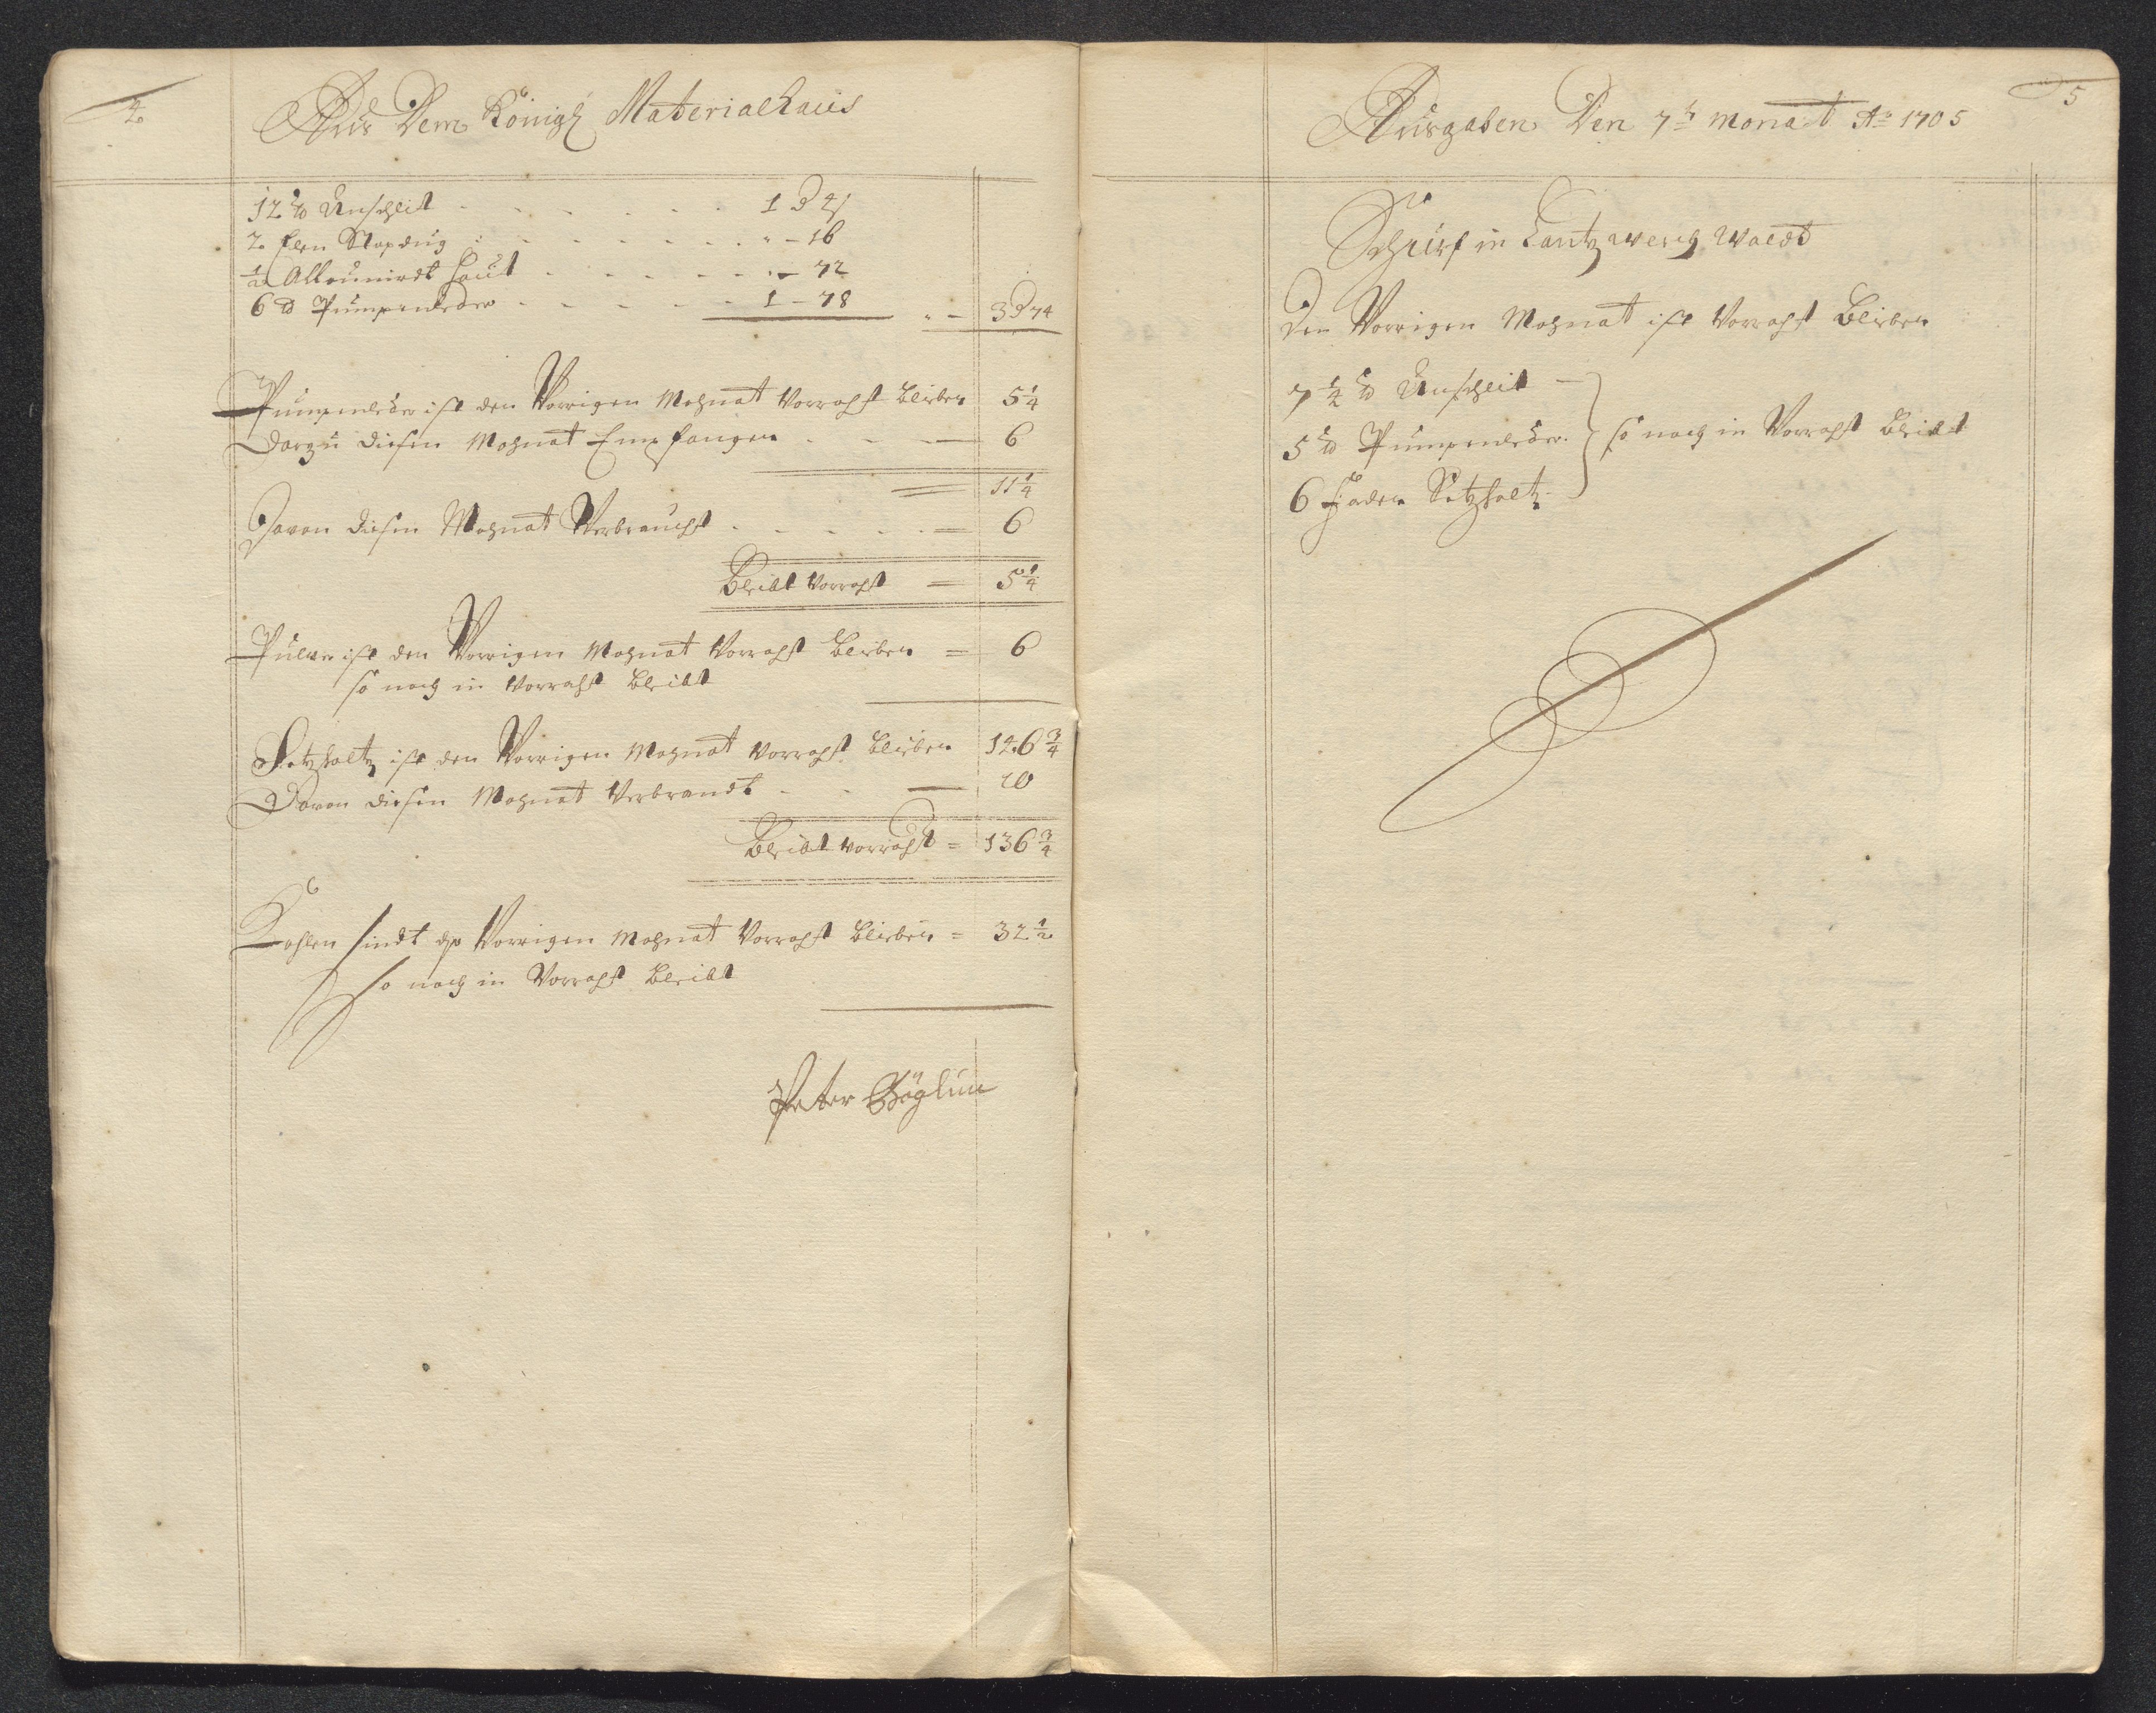 4
Aus Dem Königl Materialhaus
12 ℔ Unschlit - - - - - - 1 D 4
2 Elen Stapdug - - - - - - " - 16
½ Allaunirdt Haut - - - - - - 72
6 ℔ Pumpenleder - - - - - 1 - 78 " - 3 D 74
Pumpenleder ist den Vorrigen Mohnat Vorraht blieben 5¼
Darzu diesen Mohnat Empfangen - - - 6
11¼
Davon diesen Mohnat Verbraucht - - - - = 6
Bleibt Vorraht = 5¼
Pulver ist den Vorrigen Mohnat Vorraht blieben = 6
so noch in Vorraht bleibt
Setzholtz ist den Vorrigen Mohnat Vorraht blieben 146¾
Davon diesen Mohnat Verbrandt - - - 10
Bleibt Vorraht = 136¾
Kohlen sindt Vorrigen Mohnat Vorraht blieben = 32½
so noch in Vorraht bleibt
Peter
5
Ausgaben Den 7t monat Ao 1705
Schürf in Lantzwerch Waldt
Den Vorrigen Mohnat ist Vorraht blieben
7½ ℔ Unschlit -
5 ℔ Pumpenleder. so noch in Vorraht bleibt
6 Fader Setzholtz